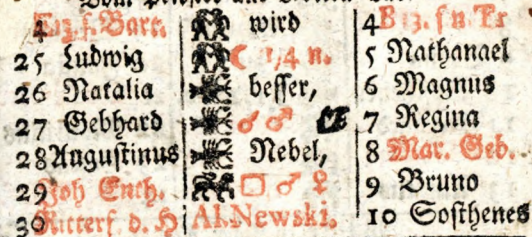 25 Ludwig ☾ 1/4 n. 5 Nathanael
26 Natalia besser, 6 Magnus
27 Gebhard ☌ ♂ 7 Regina
28 Augustinus Nebel, 8 Mar. Geb.
29 Joh Enth. □ ♂ ♀ 9 Bruno
30 Ritterf. d. H Al. Newski. 10 Sosthenes